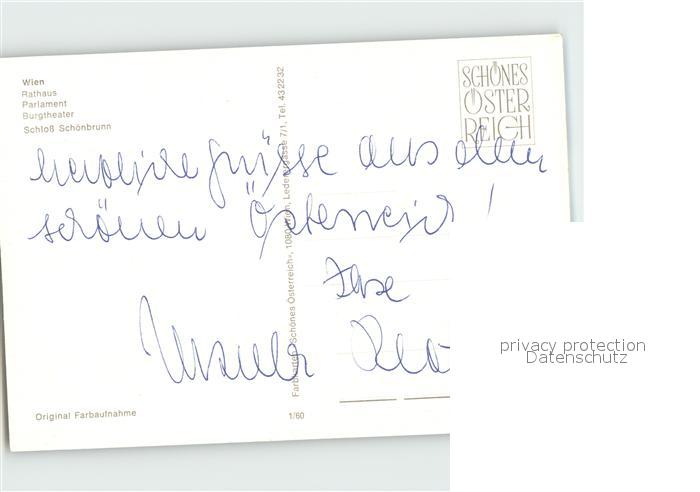 Wien
Rathaus
Parlament
Burgtheater
Schloß Schönbrunn
SCHÖNES
ÖSTER
REICH
herzliche Grüsse aus dem
schönen Österreich!
Ihre
Ursula
Farbkarten „Schönes Österreich«, 1080 Wien, Lederergasse 7/1, Tel. 432232
Original Farbaufnahme
1/60
privacy protection
Datenschutz